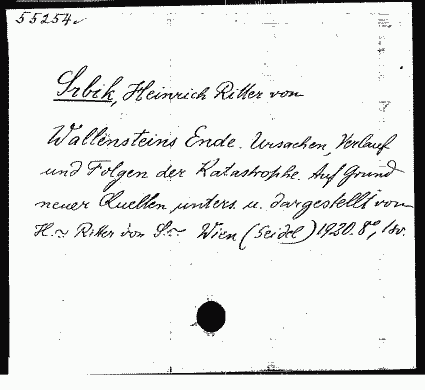 55254
Srbik, Heinrich Ritter von
Wallensteins Ende. Ursachen, Verlauf
und Folgen der Katastrophe. Auf Grund
neuer Quellen unters. u. dargestellt von
H. ~ Ritter von S. ~ Wien (Seidel) 1920. 8°, 1 sv.